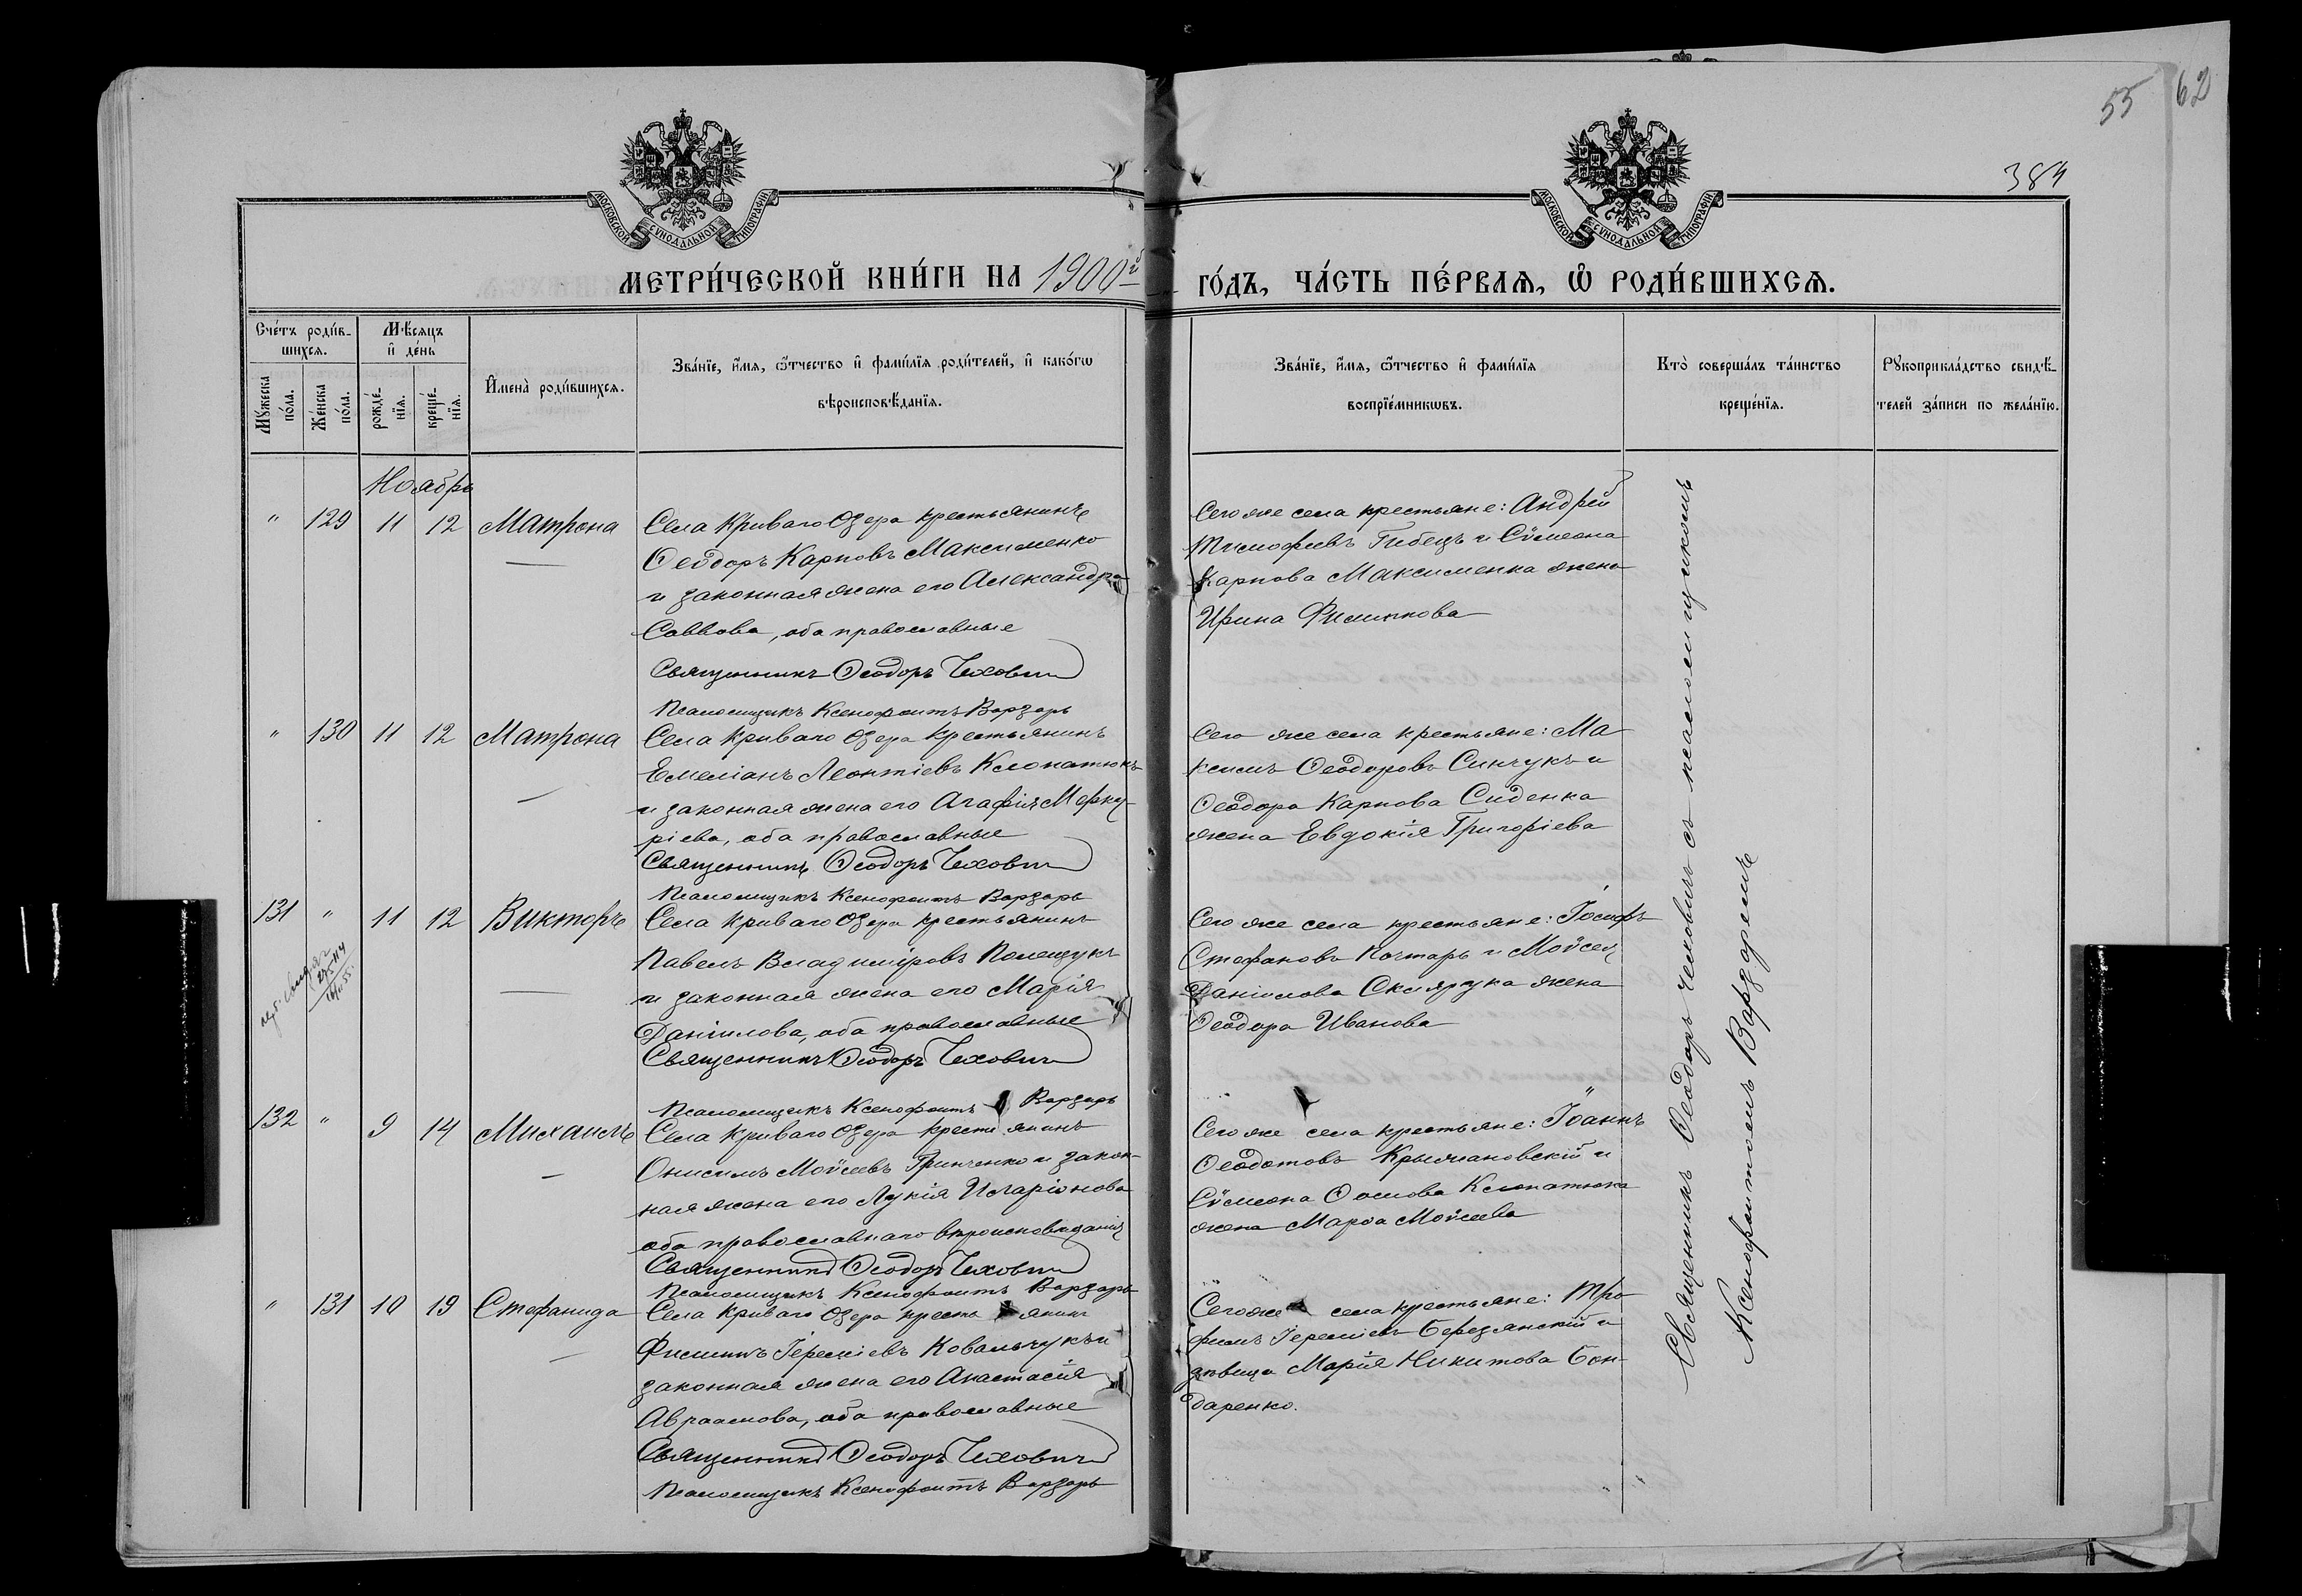 55
62
384
МОСКОВСКОЙ СѴНОДАЛЬНОЙ ТИПОГРАФІИ
МОСКОВСКОЙ СѴНОДАЛЬНОЙ ТИПОГРАФІИ
МЕТРИ́ЧЕСКОЙ КНИ́ГИ НА 1900й
ГО́ДЪ, ЧА́СТЬ ПЕ́РВАѦ, Ѡ҆ РОДИ́ВШИХСѦ.
Сче́тъ роди́в-
шихсѧ.
Мꙋ́жеска
по́ла.
Же́нска
по́ла.
Мѣ́сяцъ
и҆ де́нь
рожде́-
нїѧ.
креще́-
нїѧ.
И҆мена̀ роди́вшихсѧ.
Зва́нїе, и҆́мѧ, ѻ҆́тчество и҆ фамі́лїѧ роди́телей, и҆ како́гѡ
вѣроисповѣ́данїѧ.
Зва́нїе, и҆́мѧ, ѻ҆́тчество и҆ фамі́лїѧ
воспрїе́мникѡвъ.
Кто̀ соверша́лъ та́инство
креще́нїѧ.
Рꙋкоприкла́дство свидѣ́-
телей за́писи по жела́нїю.
Ноябрь
" 129 11 12 Матрона
Села Криваго Озера крестьянинъ
Ѳеодоръ Карповъ Максименко
и законная жена его Александра
Саввова, оба православные
Священникъ Ѳеодоръ Чеховичъ
Псаломщикъ Ксенофонтъ Варзарь
Сего же села крестьяне: Андрей
Тимофеевъ Гибецъ и Сѵмеона
Карпова Максименка жена
Ирина Филиппова
" 130 11 12 Матрона
Села Криваго Озера крестьянинъ
Емеліанъ Леонтіевъ Клопатюкъ
и законная жена его Агафія Мерку-
ріева, оба православные
Священникъ Ѳеодоръ Чеховичъ
Псаломщикъ Ксенофонтъ Варзарь
Сего же села крестьяне: Ма
ксимъ Ѳеодоровъ Синчукъ и
Ѳеодора Карпова Сиденка
жена Евдокія Григоріева
131 " 11 12 Викторъ
Села Криваго Озера крестьянинъ
Павелъ Владиміровъ Полещукъ
и законная жена его Марія
Даніилова, оба православные
Священникъ Ѳеодоръ Чеховичъ
Псаломщикъ Ксенофонтъ Варзарь
Сего же села крестьяне: Іосифъ
Стефановъ Кочтарь и Моѵсея
Даніилова Склярука жена
Ѳеодора Иванова
132 " 9 14 Михаилъ
Села Криваго Озера крестьянинъ
Онисимъ Моѵсеевъ Гринченко и закон-
ная жена его Лукія Иларіонова
оба православнаго вѣроисповѣданія
Священникъ Ѳеодоръ Чеховичъ
Псаломщикъ Ксенофонтъ Варзарь
Сего же села крестьяне: Іоаннъ
Ѳеодотовъ Крыжановскій и
Сѵмеона Ѳомова Клопатюка
жена Марѳа Моѵсеева
" 131 10 19 Стефанида
Села Криваго Озера крестьянинъ
Филиппъ Іереміевъ Ковальчукъ и
законная жена его Анастасія
Авраамова, оба православные
Священникъ Ѳеодоръ Чеховичъ
Псаломщикъ Ксенофонтъ Варзарь
Сего же села крестьяне: Тро
фимъ Іереміевъ Березянскій и
дѣвица Марія Никитова Бон-
даренко.
Священникъ Ѳеодоръ Чеховичъ съ псаломщикомъ
Ксенофонтомъ Варзаремъ